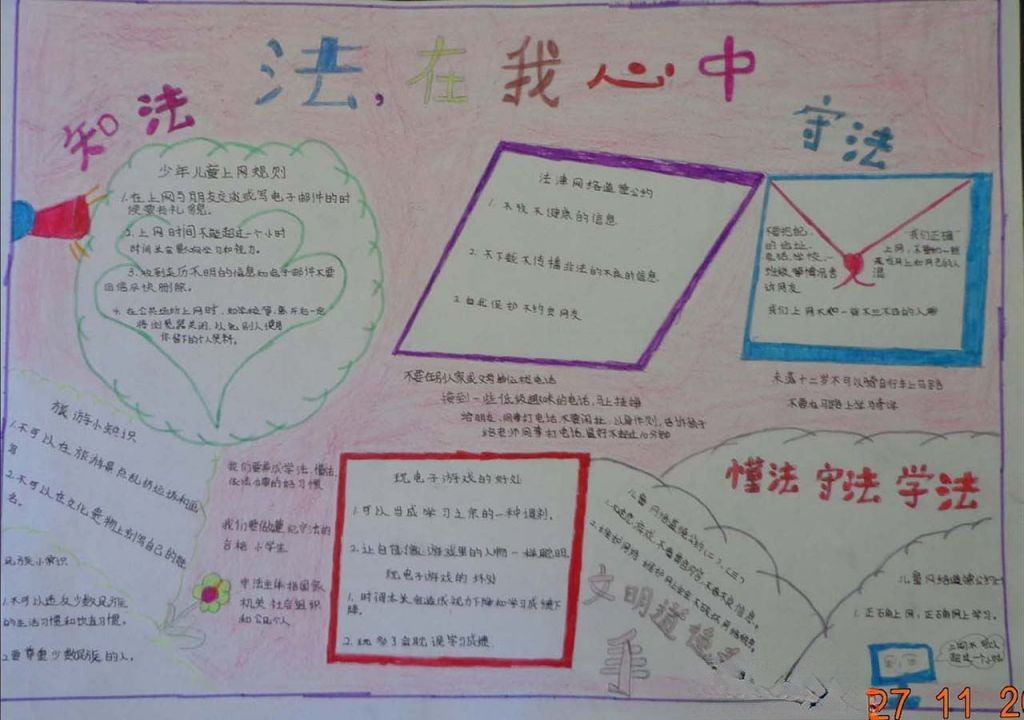 法，在我心中
知法
守法
少年儿童上网规则
1.在上网与朋友交谈或写电子邮件的时
候要有礼貌。
2.上网时间不能超过一个小时
时间长会影响学习和视力。
3.收到来历不明的信息和电子邮件不要
回信应快删除。
4.在公共场所上网时，如学校等，离开后一定
将浏览器关闭，以免别人使用
你留下的个人资料。
法律网络道德公约
1.不找不健康的信息
2.不下载不传播非法的不良的信息
3.自我保护不约会网友
不要把起
的地址、
电话、学校、
班级
告
诉网友
我们正确
上网，不要和一些
混
我们上网不和一些不三不四的人聊
不要在别人家或父母单位挂电话
接到一些低级趣味的电话，马上挂掉
给朋友、同事打电话不要闲扯，以身作则，告诉孩子
给老师同事打电话，最好不超过10分钟
未满十二岁不可以骑自行车上马路
不要在马路上学习骑车
旅游小知识
1.不可以在旅游景点乱扔垃圾和乱
写
2.不可以在文化景物上刻写自己的姓
名。
民族小常识
1.不可以违反少数民族
的生活习惯和饮食习惯。
2.要尊重少数民族的人。
我们要养成学法、懂法、
依法办事的好习惯
我们要做遵纪守法的
合格小学生
守法主体指国家
机关社会组织
和公民个人
玩电子游戏的好处
1.可以当成学习之余的一种调剂。
2.让自信像游戏里的人物一样聪明。
玩电子游戏的坏处
1.时间太长会造成视力下降和学习成绩下
降。
2.玩多了会耽误学习成绩
懂法守法学法
儿童网络道德公约(二)、(三)
文明道德
儿童网络道德公约(一)
1.正确上网，正确网上学习。
上网不可以
超过一个小时
27 11 20